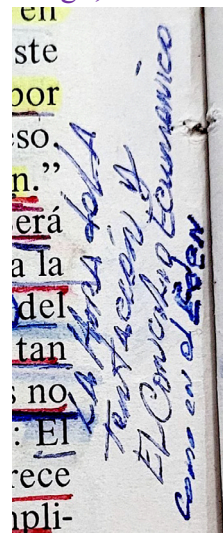 en
ste
por
eso,
n.”
erá
a la
del
tan
s no
: El
rece
mpli-
La Hora de la
Tentación y
El Concilio Ecumenico
como en el Edén